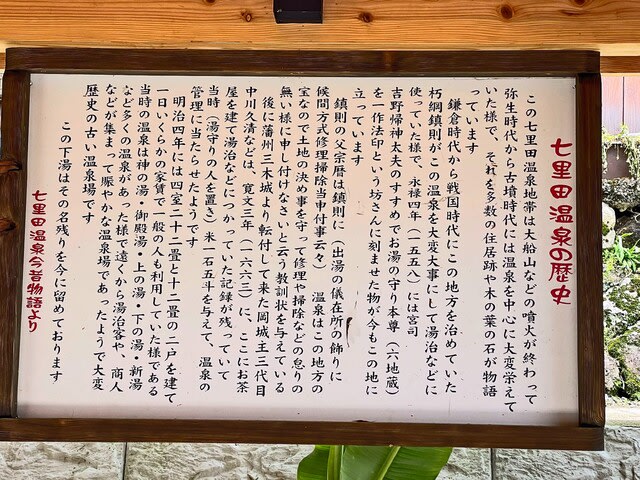 七里田温泉の歴史
この七里田温泉地帯は大船山などの噴火が終わって
弥生時代から古墳時代には温泉を中心に大変栄えて
いた様で、それを多数の住居跡や木の葉の石が物語
っています
鎌倉時代から戦国時代にこの地方を治めていた
朽綱鎮則がこの温泉を大変大事にして湯治などに
使っていた様で、永禄四年(一五五八)には宮司
吉野帰神太夫のすすめでお湯の守り本尊(六地蔵)
を一作法印という坊さんに刻ませた物が今もこの地に
立っています
鎮則の父宗暦は鎮則に(出湯の儀在所の飾りに
候間方式修理掃除当申付事云々) 温泉はこの地方の
宝なので土地の決め事を守って修理や掃除などの怠りの
無い様に申し付けなさいと云う教訓状を与えている
後に藩州三木城より転付して来た岡城主三代目
中川久清などは、寛文三年(一六六三)に、ここにお茶
屋を建て湯治などにつかっていた記録が残っていて
当時(湯守りの人を置き)米一石五斗を与えて、温泉の
管理に当たらせたようです
明治四年には四室二十二畳と十二畳の二戸を建て
一日いくらかの家賃で一般の人も利用していた様である
当時の温泉は神の湯・御殿湯・上の湯・下の湯・新湯
など多くの温泉があった様で遠くから湯治客や、商人
などが集まって賑やかな温泉場であったようで大変
歴史の古い温泉場です
この下湯はその名残りを今に留めております
七里田温泉今昔物語より